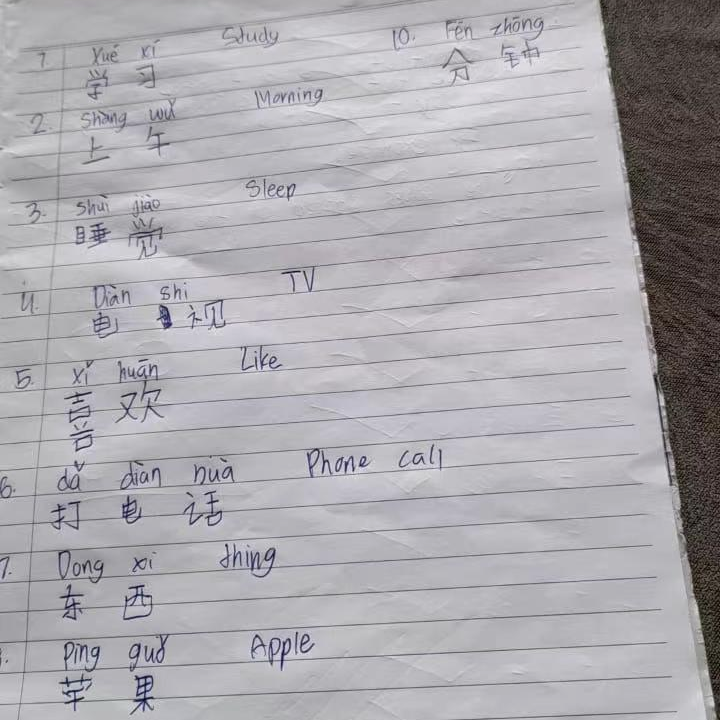 1. Xué xí Study
学 习
2. Shàng wǔ Morning
上 午
3. Shuì jiào Sleep
睡 觉
4. Diàn shi TV
电 视
5. xǐ huān Like
喜 欢
6. dǎ diàn huà Phone call
打 电 话
7. Dong xi thing
东 西
Ping guǒ Apple
苹 果
10. Fēn zhōng
分 钟